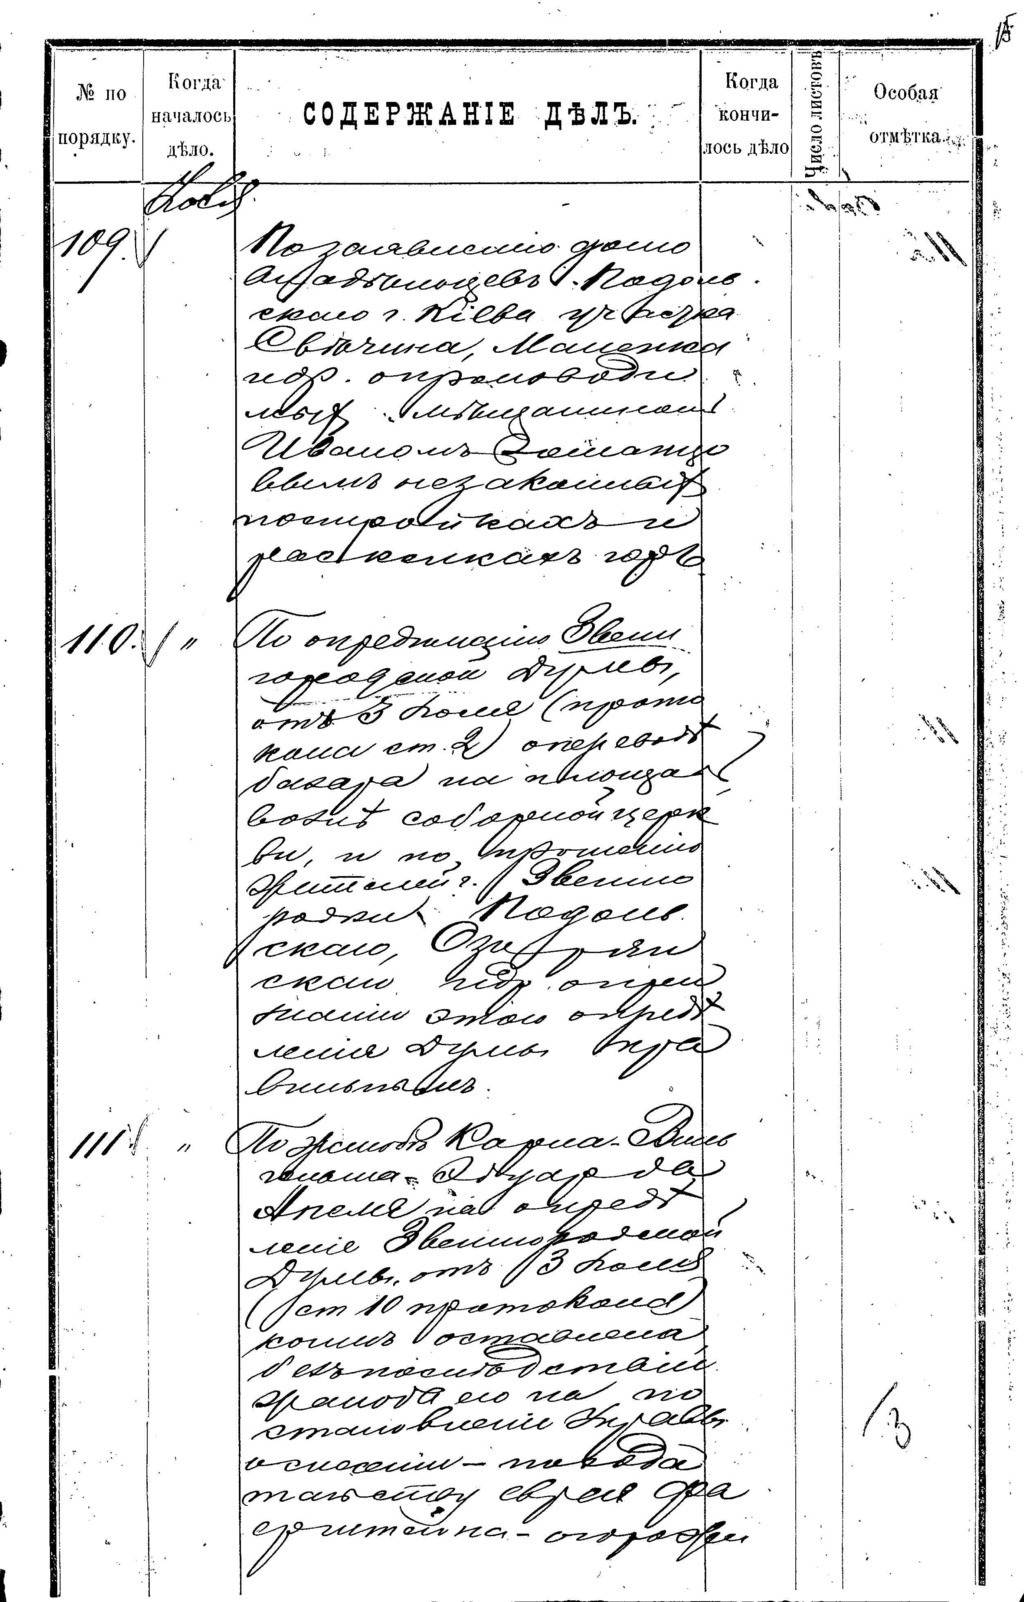 № по порядку.
Когда началось дѣло.
СОДЕРЖАНІЕ ДѢЛЪ.
Когда кончилось дѣло
Число листовъ
Особая отмѣтка.
109.
По заявленію домо
владѣльцевъ Подоль
скаго г. Кіева участка
Свѣчина, Маценка
и др. о производи
мых мѣщаниномъ
Иваномъ
вымъ незаконных
постройкахъ и
раскопкахъ горъ
110. "
По опредѣленію Звени
городской Думы,
отъ 3 Іюля (прото
кола ст. 2) о переводѣ
базара на площадь
возлѣ соборной церк
ви, и по прошенію
жителей г. Звениго
родки Подоль
скаго, Озирян
скаго и др. о приз
наніи этого опредѣ
ленія Думы пра
вильнымъ.
111 "
По жалобѣ Карла-Виль
гельма-Эдуарда
Апеля на опредѣ
леніе Звенигородской
Думы отъ 3 Іюля
(ст 10 протокола)
коимъ оставлена
безъ послѣдствій
жалоба его на по
становленіе Управы
о снесеніи - по хода
тайству еврея
- огорожи
3